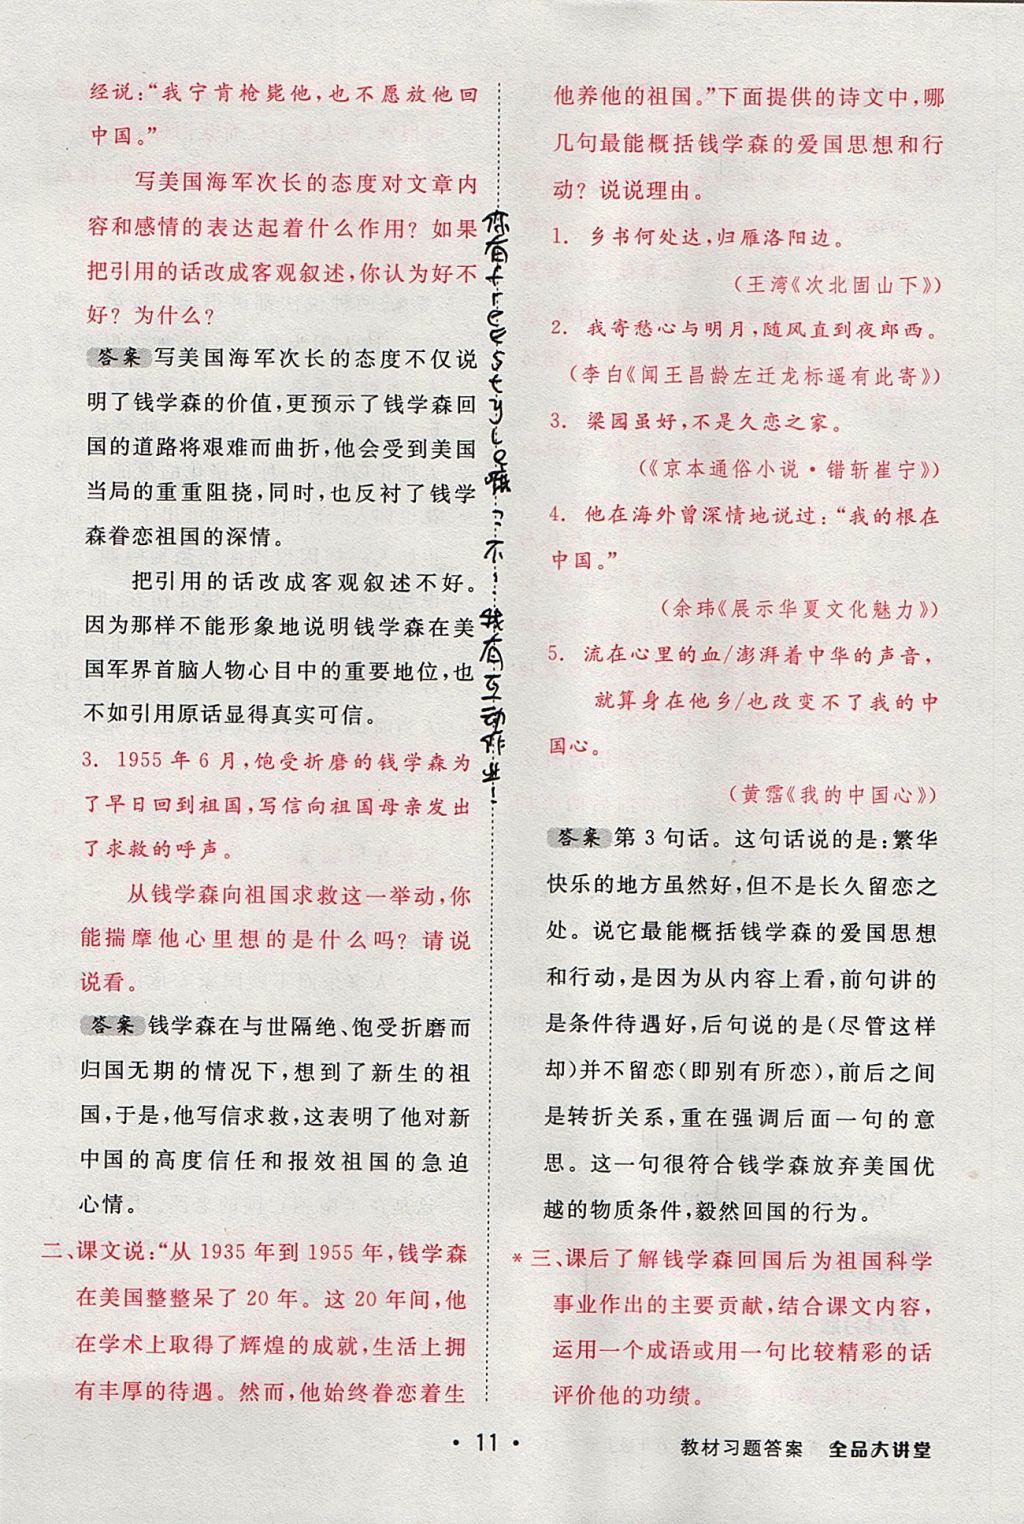 经说：“我宁肯枪毙他，也不愿放他回
中国。”
写美国海军次长的态度对文章内
容和感情的表达起着什么作用？如果
把引用的话改成客观叙述，你认为好不
好？为什么？
答案 写美国海军次长的态度不仅说
明了钱学森的价值，更预示了钱学森回
国的道路将艰难而曲折，他会受到美国
当局的重重阻挠，同时，也反衬了钱学
森眷恋祖国的深情。
把引用的话改成客观叙述不好。
因为那样不能形象地说明钱学森在美
国军界首脑人物心目中的重要地位，也
不如引用原话显得真实可信。
3. 1955年6月，饱受折磨的钱学森为
了早日回到祖国，写信向祖国母亲发出
了求救的呼声。
从钱学森向祖国求救这一举动，你
能揣摩他心里想的是什么吗？请说
说看。
答案 钱学森在与世隔绝、饱受折磨而
归国无期的情况下，想到了新生的祖
国，于是，他写信求救，这表明了他对新
中国的高度信任和报效祖国的急迫
心情。
二、课文说：“从1935年到1955年，钱学森
在美国整整呆了20年。这20年间，他
在学术上取得了辉煌的成就，生活上拥
有丰厚的待遇。然而，他始终眷恋着生
你有freestyle嘛？不！我有互动作业！
他养他的祖国。”下面提供的诗文中，哪
几句最能概括钱学森的爱国思想和行
动？说说理由。
1. 乡书何处达，归雁洛阳边。
（王湾《次北固山下》）
2. 我寄愁心与明月，随风直到夜郎西。
（李白《闻王昌龄左迁龙标遥有此寄》）
3. 梁园虽好，不是久恋之家。
（《京本通俗小说·错斩崔宁》）
4. 他在海外曾深情地说过：“我的根在
中国。”
（余玮《展示华夏文化魅力》）
5. 流在心里的血/澎湃着中华的声音，
就算身在他乡/也改变不了我的中
国心。
（黄霑《我的中国心》）
答案 第3句话。这句话说的是：繁华
快乐的地方虽然好，但不是长久留恋之
处。说它最能概括钱学森的爱国思想
和行动，是因为从内容上看，前句讲的
是条件待遇好，后句说的是（尽管这样
却）并不留恋（即别有所恋），前后之间
是转折关系，重在强调后面一句的意
思。这一句很符合钱学森放弃美国优
越的物质条件，毅然回国的行为。
*三、课后了解钱学森回国后为祖国科学
事业作出的主要贡献，结合课文内容，
运用一个成语或用一句比较精彩的话
评价他的功绩。
· 11 ·
教材习题答案 全品大讲堂